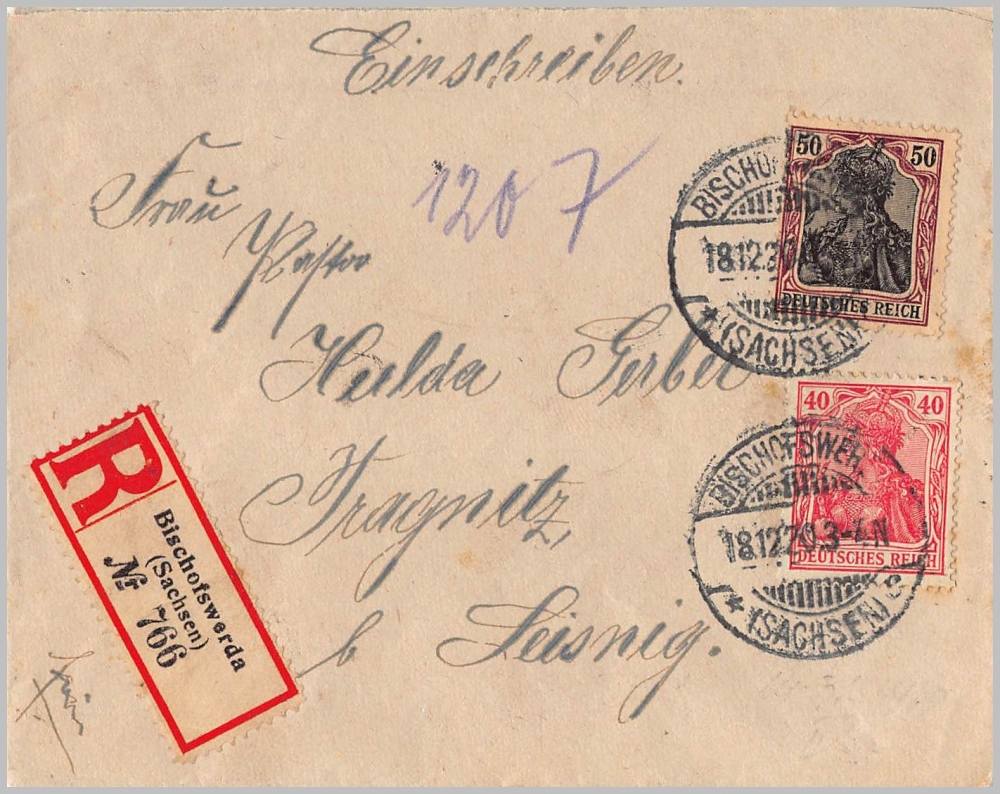 Einschreiben.
1207
Frau
Pastor
Hulda Gerber
Tragnitz,
b Leisnig.
50 50
DEUTSCHES REICH
BISCHOF
18.12.20.
* (SACHSEN)
40 40
DEUTSCHES REICH
BISCHOFSWER
18.12.20.3-4N
* (SACHSEN) c
R
Bischofswerda
(Sachsen)
Nr 766